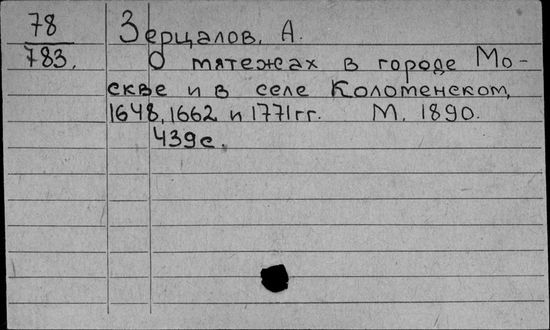 78
783.
Зерцалов, А.
О мятежах в городе Мо-
скве и в селе Коломенском,
1648, 1662 и 1771 гг. М. 1890.
439 с.